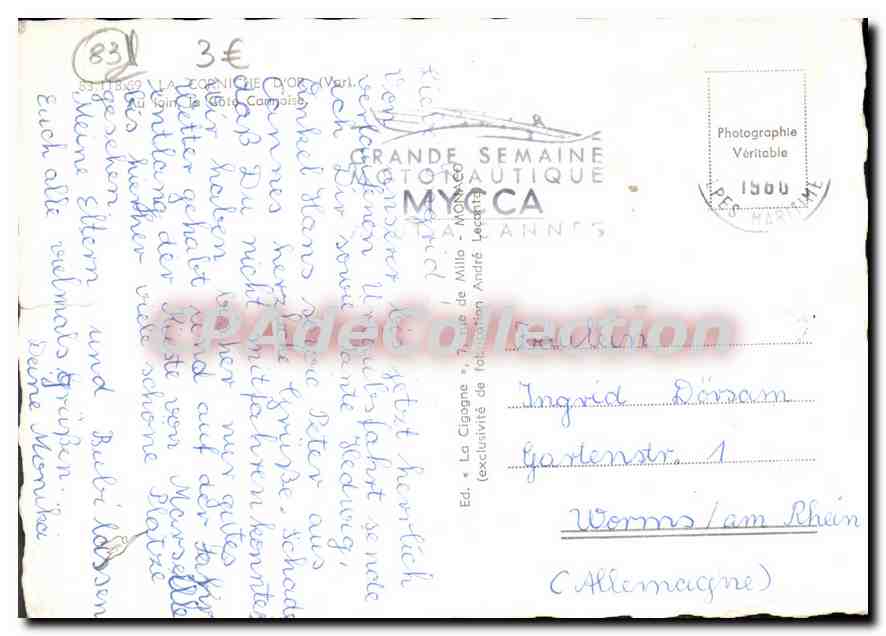 83
3 €
83.118.69 LA CORNICHE D'OR (Var).
Au loin, la Côte Cannoise.
GRANDE SEMAINE
MOTONAUTIQUE
MYCCA
CANNES
Photographie
Véritable
1960
PES MARITIME
Ed. « La Cigogne », 7, rue de Millo - MONACO
(exclusivité de fabrication André Leconte)
CPAdeCollection
Fräulein
Ingrid Dörsam
Gartenstr. 1
Worms/am Rhein
(Allemagne)
Ingrid!
Von unserer bis jetzt herrlich
verlaufenen Urlaubsfahrt sende
ich Dir sowie Tante Hedwig,
Onkel Hans sowie Peter aus
Cannes herzliche Grüße. Schade
daß Du nicht mitfahren konntest
Wir haben bisher nur gutes
Wetter gehabt und auf der Fahrt
entlang der Küste von Marseille
bis hierher viele schöne Plätze
gesehen.
Meine Eltern und Bubi lassen
Euch alle vielmals grüßen.
Deine Monika